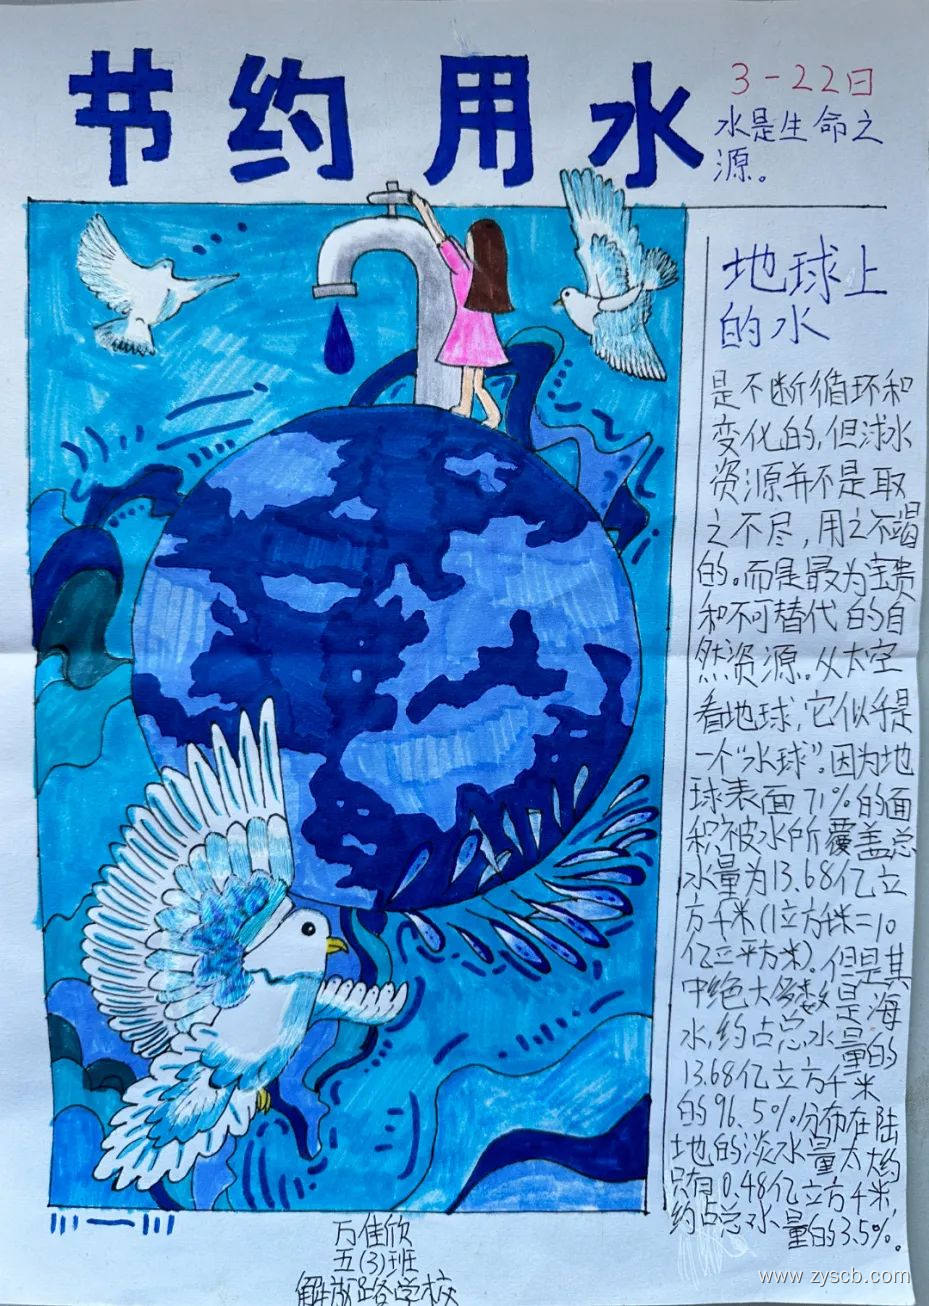 节约用水
3-22日
水是生命之
源。
地球上
的水
是不断循环和
变化的,但求水
资源并不是取
之不尽,用之不竭
的。而是最为宝贵
和不可替代的自
然资源。从太空
看地球,它似乎是
一个“水球”。因为地
球表面71%的面
积被水所覆盖总
水量为13.68亿立
方千米(1立方千米=10
亿立平方米)。但是其
中绝大多数是海
水,约占总水量的
13.68亿立方千米
的96.5%分布在陆
地的淡水量太大约
只有0.48亿立方千米,
约占总水量的3.5%。
万佳欣
五(3)班
解放路学校
www.zyscb.com